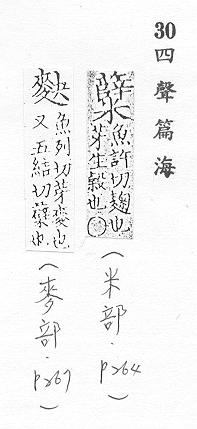 30 四聲篇海
魚許切麴也
芽生穀也○
(米部．p264)
魚列切芽麥也
又五結切糵也
(麥部．p267)